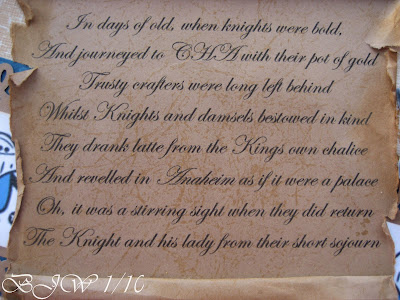 In days of old, when knights were bold,
And journeyed to CHA with their pot of gold
Trusty crafters were long left behind
Whilst Knights and damsels bestowed in kind
They drank latte from the Kings own chalice
And revelled in Anaheim as if it were a palace
Oh, it was a stirring sight when they did return
The Knight and his lady from their short sojourn
BJW 1/10